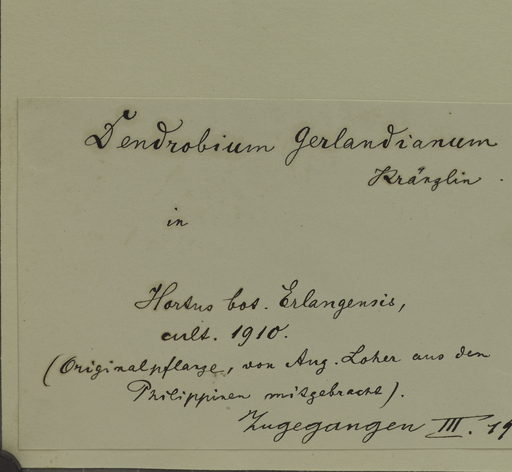 Dendrobium Gerlandianum
Kränzlin.
in
Hortus bot. Erlangensis,
cult. 1910.
(Originalpflanze, von Aug. Loher aus den
Philippinen mitgebracht).
Zugegangen III. 19